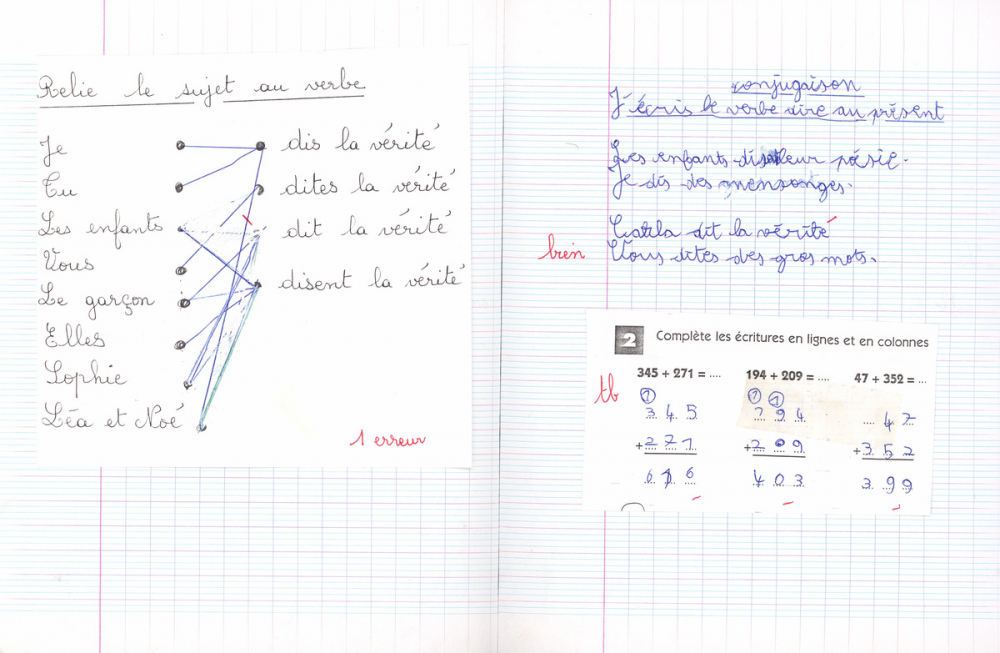 Relie le sujet au verbe
Je
dis la vérité
Tu
dites la vérité
Les enfants
dit la vérité
Vous
disent la vérité
Le garçon
Elles
Sophie
Léa et Noé
1 erreur
conjugaison
J'écris le verbe dire au présent
Les enfants disent leur poésie.
Je dis des mensonges.
dit la vérité
bien
Vous dites des gros mots.
2 Complète les écritures en lignes et en colonnes
345 + 271 = .... 194 + 209 = .... 47 + 352 = ...
tb
1 1 1
3 4 5 1 9 4 4 7
+ 2 7 1 + 2 0 9 + 3 5 2
6 1 6 4 0 3 3 9 9